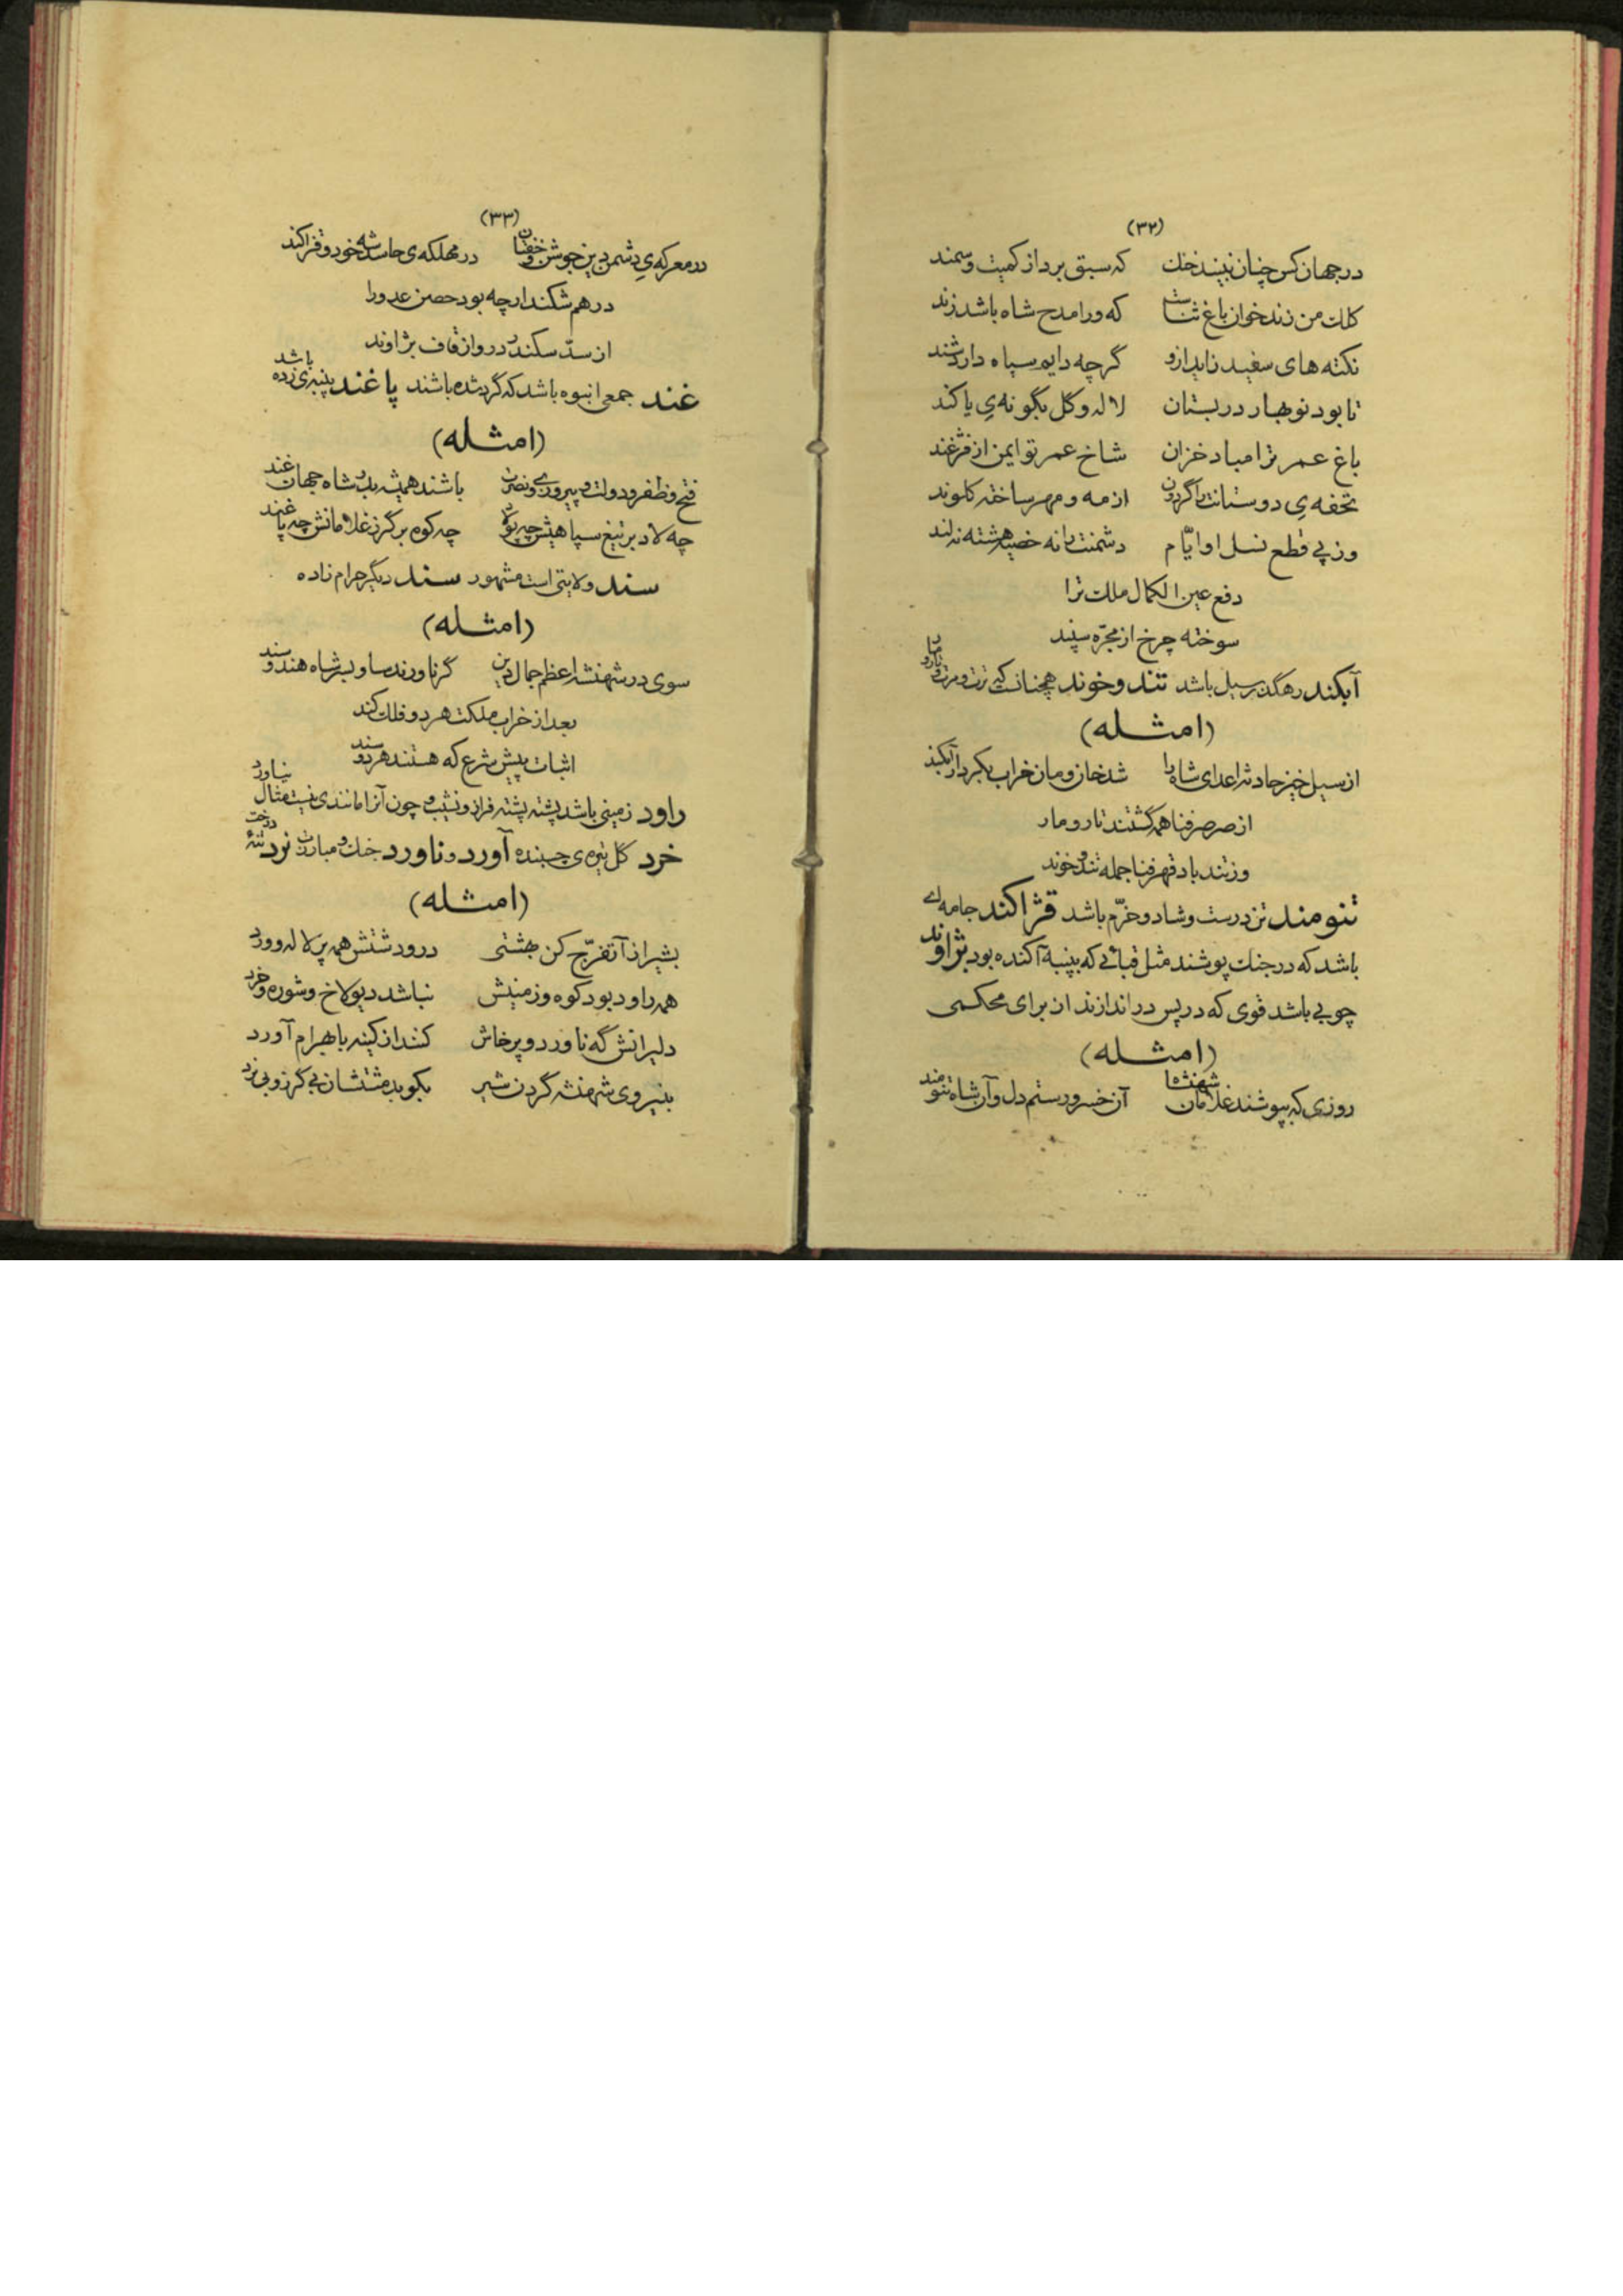 (۳۲)
در جهان کس چنان نبیند خنك که سبق برد از کمیت و سمند
کلك من زند خوان باغ ثناست که ورا مدح شاه باشد زند
نکته های سفید زاید ازو گرچه دایم سیاه دارد شند
تا بود نوبهار در بستان لاله و گل بگونه‌یِ یاکند
باغ عمر ترا مباد خزان شاخ عمر تو ایمن از فژغند
تحفه‌یِ دوستانت را گردون از مه و مهر ساخته کلوند
وز پی قطع نسل او ایّام دشمنت را نه خصیه هشته نه لند
دفع عین الکمال ملك ترا
سوخته چرخ از مجرّه سپند
آبکند رهگذر سیل باشد تند و خوند همچنانست که ترت و مرت و تار و مار
(امثـــله)
از سیل خیز حادثه اعدای شاه را شد خان و مان خراب بکردار آبکند
از صرصر فنا همه گشتند تار و مار
وز تند باد قهر فنا جمله تند و خوند
تنومند تن درست و شاد و خرّم باشد قژاکند جامه‌ای
باشد که در جنك پوشند مثل قبائی که بپنبه آکنده بود بژاوند
چوبی باشد قوی که در پس در اندازند از برای محکمی
(امثـــله)
روزی که بپوشند غلامان شهنشاه آن خسرو رستم دل و آن شاه تنومند
(۳۳)
در معرکه‌یِ دشمن دین جوشن و خفتان در مهلکه‌ی حاسد شه خود و قژاکند
در هم شکند ارچه بود حصن عدو را
از سدّ سکندر در و از قاف بژاوند
غند جمعی انبوه باشد که گرد شده باشند پاغند پنبه‌ی زده باشد
(امثـــله)
فتح و ظفر و دولت و پیروزی و نصرت باشند همیشه بدر شاه جهان غند
چه لاد بر تیغ سپاهش چه پولاد چه کوه بر گرز غلامانش چه پاغند
سند ولایتی است مشهور سند دیگر حرام زاده
(امثـــله)
سوی در شهنشه اعظم جمال دین گر ناورند ساو بسر شاه هند و سند
بعد از خراب مملکت هر دو فلك کند
اثبات پیش شرع که هستند هر دو سند
راود زمینی باشد پشته پشته فراز و نشیب و چون آنرا مانندی نیست مثال نیاورد
خرد گل تیره‌ی چسبنده آورد و ناورد جنك و مبارزت نرد تنهٔ درخت
(امثـــله)
بشیراز آ تفرّج کن بهشتی در و دشتش همه پر لاله و ورد
همه راود بود کوه و زمینش نباشد دیولاخ و شوره و خرد
دلیرانش گه ناورد و پرخاش کنند از کینه با بهرام آورد
بنیروی شهنشه گردن شیر بکوبد مشتشان بی گرز و بی نرد